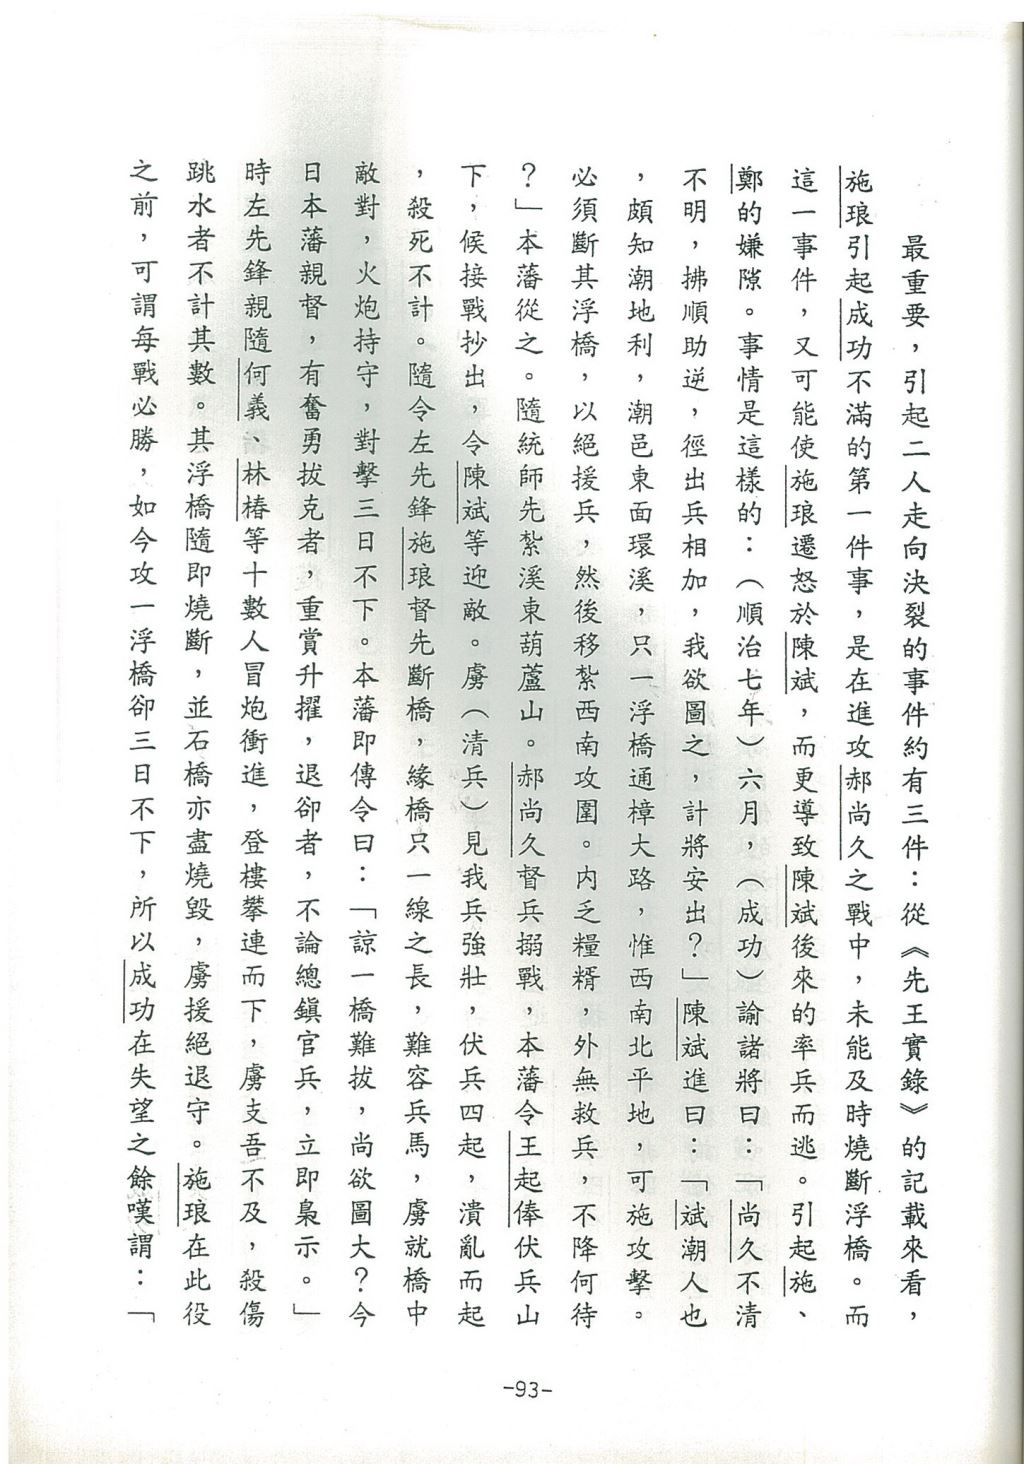 最重要，引起二人走向決裂的事件約有三件：從《先王實錄》的記載來看，
施琅引起成功不滿的第一件事，是在進攻郝尚久之戰中，未能及時燒斷浮橋。而
這一事件，又可能使施琅遷怒於陳斌，而更導致陳斌後來的率兵而逃。引起施、
鄭的嫌隙。事情是這樣的：（順治七年）六月，（成功）諭諸將曰：「尚久不清
不明，拂順助逆，徑出兵相加，我欲圖之，計將安出？」陳斌進曰：「斌潮人也
，頗知潮地利，潮邑東面環溪，只一浮橋通樟大路，惟西南北平地，可施攻擊。
必須斷其浮橋，以絕援兵，然後移紮西南攻圍。內乏糧糈，外無救兵，不降何待
？」本藩從之。隨統師先紮溪東葫蘆山。郝尚久督兵搦戰，本藩令王起俸伏兵山
下，候接戰抄出，令陳斌等迎敵。虜（清兵）見我兵強壯，伏兵四起，潰亂而起
，殺死不計。隨令左先鋒施琅督先斷橋，緣橋只一線之長，難容兵馬，虜就橋中
敵對，火炮持守，對擊三日不下。本藩即傳令曰：「諒一橋難拔，尚欲圖大？今
日本藩親督，有奮勇拔克者，重賞升擢，退卻者，不論總鎮官兵，立即梟示。」
時左先鋒親隨何義、林椿等十數人冒炮衝進，登樓攀連而下，虜支吾不及，殺傷
跳水者不計其數。其浮橋隨即燒斷，並石橋亦盡燒毀，虜援絕退守。施琅在此役
之前，可謂每戰必勝，如今攻一浮橋卻三日不下，所以成功在失望之餘嘆謂：「
-93-